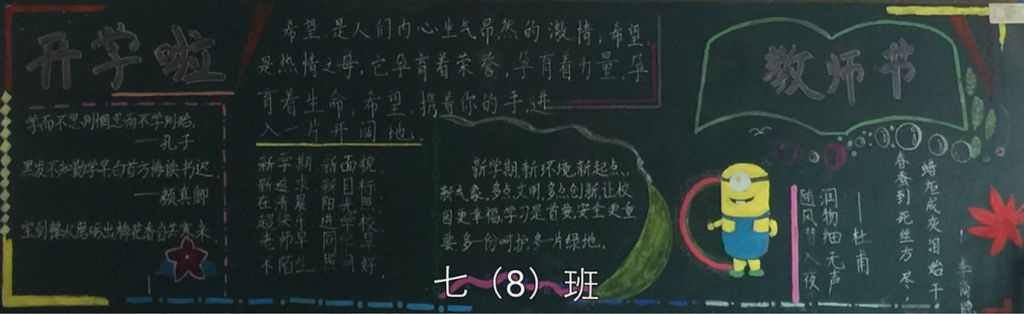 开学啦
学而不思则罔思而不学则殆
——孔子
黑发不知勤学早白首方悔读书迟
——颜真卿
宝剑锋从磨砺出梅花香自苦寒来
希望是人们内心生气昂然的激情,希望
是热情之母,它孕育着荣誉,孕育着力量,孕
育着生命,希望,携着你的手,进
入一片开阔地。
新学期 新面貌
新追求 新目标
新学期新环境新起点、
新气象。多点文明,多点创新让校
园更幸福,学习是首要,安全更重
要多一份呵护,多一片绿地。
教师节
蜡炬成灰泪始干
春蚕到死丝方尽,
李商隐
——杜甫
润物细无声
随风潜入夜
七（8）班